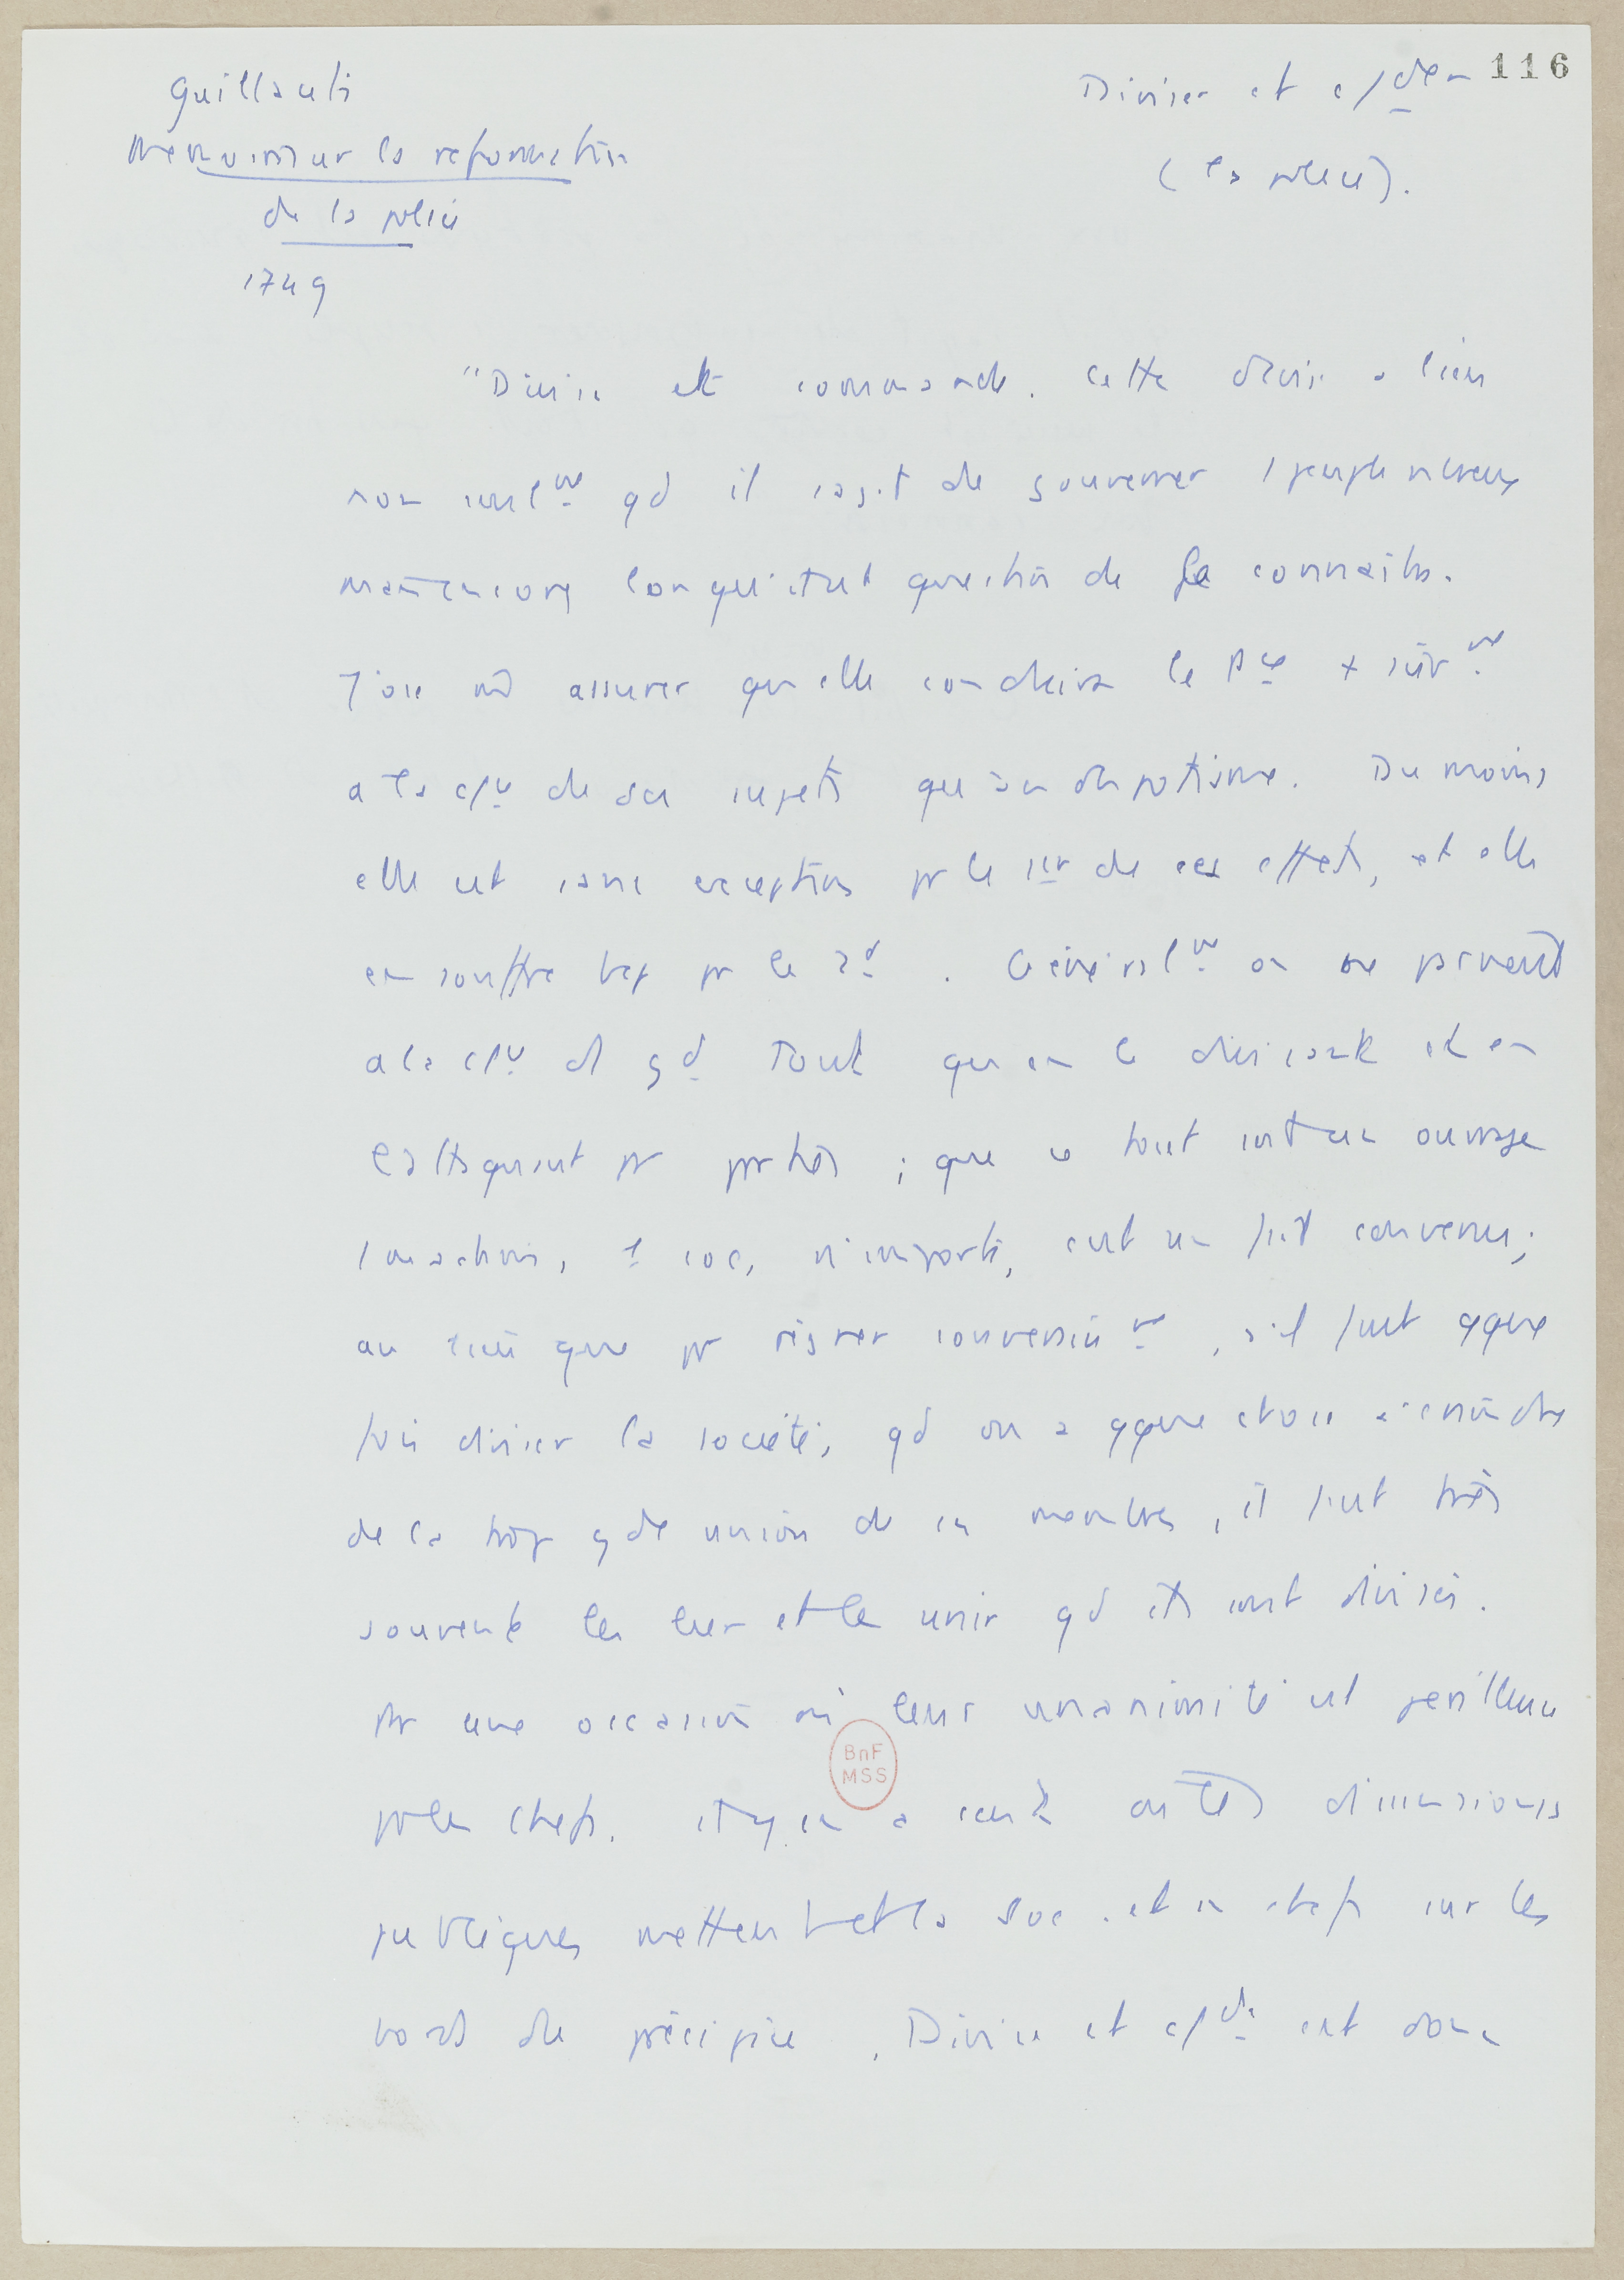 116
Guillauté
Mémoire sur la reformation
de la police
1749
Diviser et c/der
(la police).
"Divise et commande. Cette devise a lieu
non seulmt qd il s'agit de gouverner 1 peuple nbreux
mais encore lorsqu'il est question de le connaître.
J'ose m̂ assurer qu'elle conduira le Pce + sûrmt
à la c/ce de ses sujets qu'au despotisme. Du moins
elle est sans exception pr le 1er de ces effets, et elle
en souffre bcp pr le 2d. Généralmt on ne parvient
à la c/ce d'1 gd tout qu'en le divisant et en
l'attaquant pr parties ; que ce tout soit un ouvrage
1 machine, 1 soc, n'importe, c'est un fait convenu;
au lieu que pr régner souverainmt, s'il faut qque
fois diviser la société, qd on a qque chose à craindre
de la trop gde union de ses membres, il faut très
souvent les lier et les unir qd ils sont divisés.
Pr une occasion où leur unanimité est périlleuse
pr les chefs, il y en a cent où les dissensions
publiques mettent et la soc. et ses chefs sur les
bords du précipice. Divise et c/de est donc
BnF
MSS